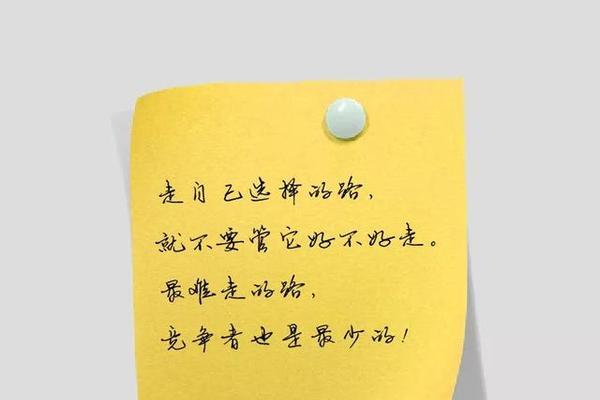 走自己选择的路，
就不要管它好不好走。
最难走的路，
竞争者也是最少的！